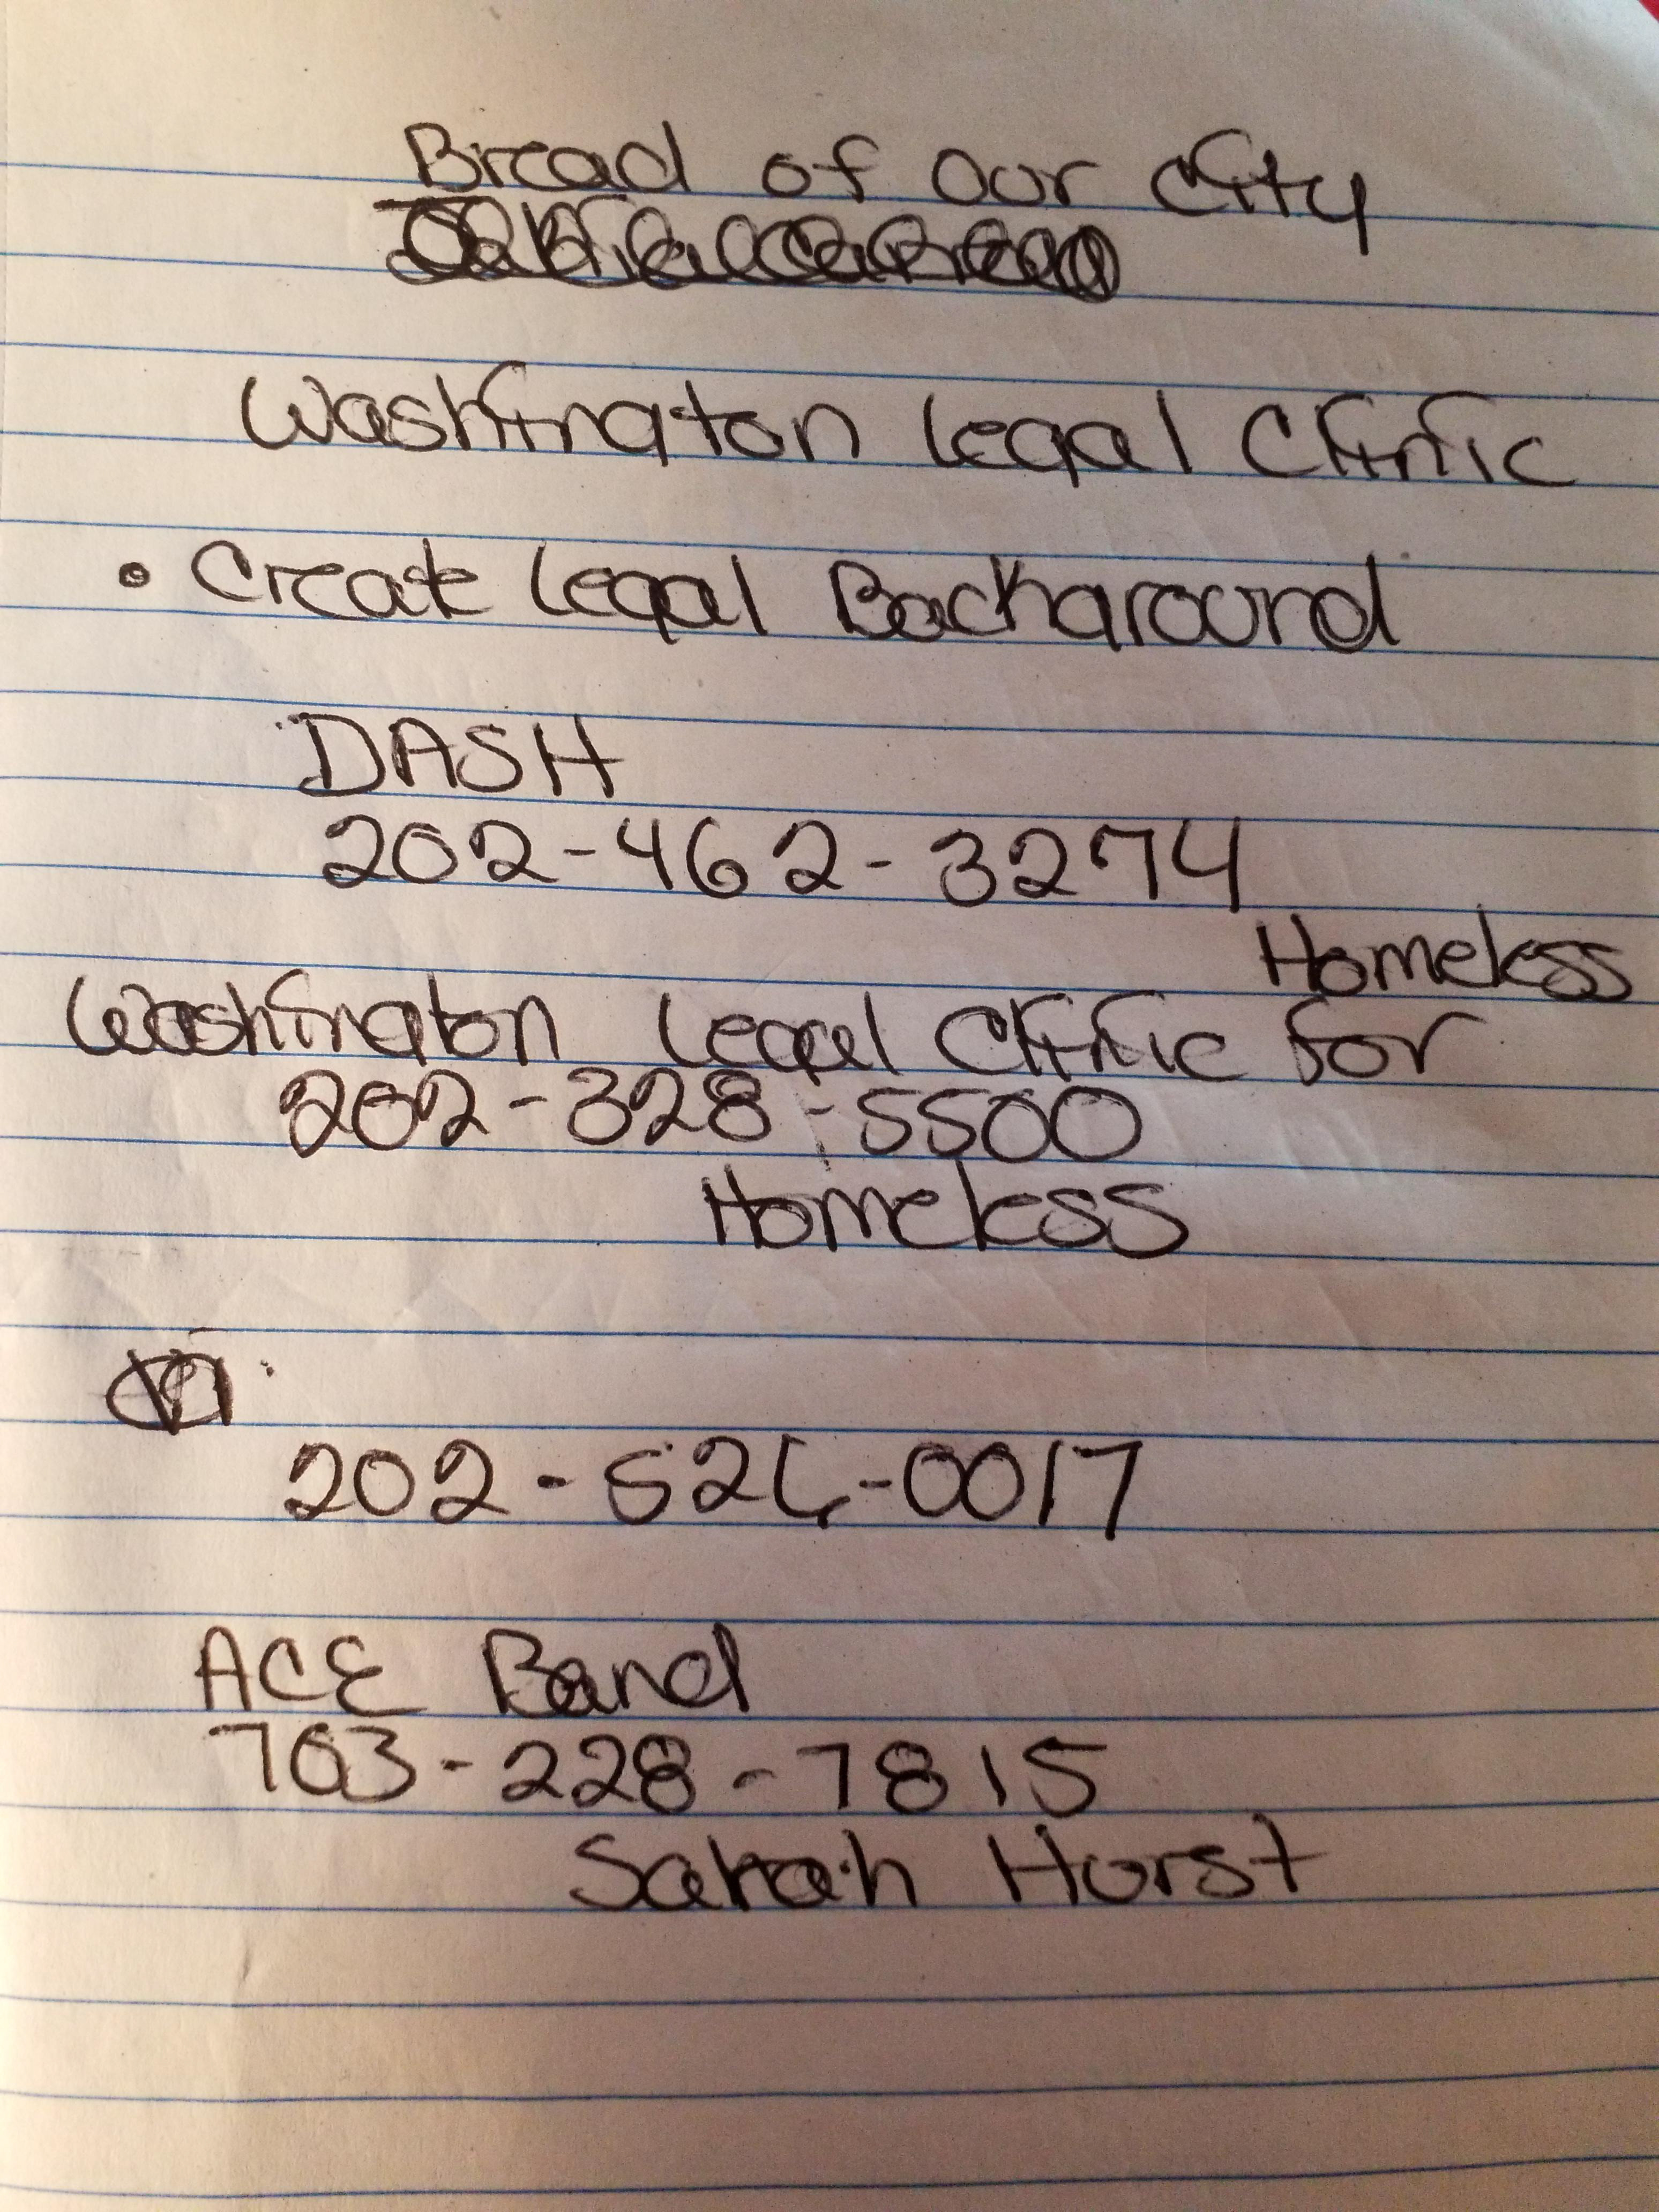 Bread of our city
Washington Legal Clinic
• Create Legal Background
DASH
202-462-3274
Homeless
Washington Legal Clinic for
202-328-5500
Homeless
202-526-0017
ACE Band
703-228-7815
Sarah Hurst